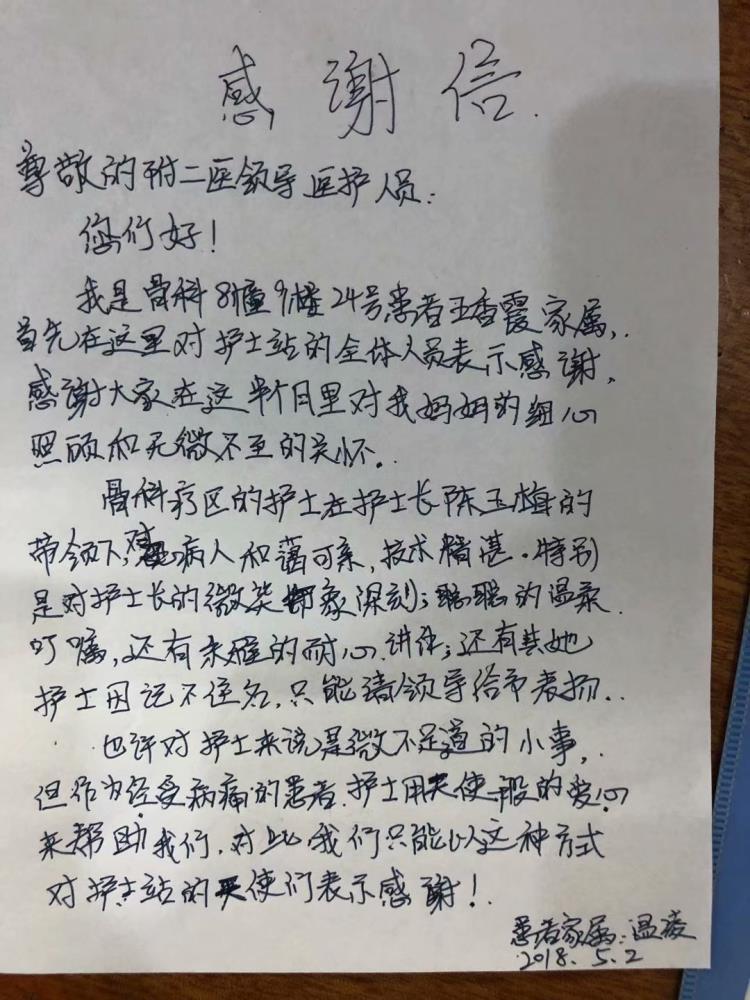 感谢信.
尊敬的附二医领导医护人员:
您们好!
我是骨科8幢9楼24号患者王香霞家属,
首先在这里对护士站的全体人员表示感谢,
感谢大家在这半个月里对我妈妈的细心
照顾和无微不至的关怀.
骨科疗区的护士在护士长陈玉梅的
带领下,对病人和蔼可亲,技术精湛.特别
是对护士长的微笑印象深刻;聪聪的温柔
叮嘱,还有未雅的耐心讲解;还有其她
护士因记不住名,只能请领导给予表扬..
也许对护士来说是微不足道的小事,
但作为经受病痛的患者.护士用天使般的爱心
来帮助我们,对此我们只能以这种方式
对护士站的天使们表示感谢!
患者家属:温凌
2018.5.2